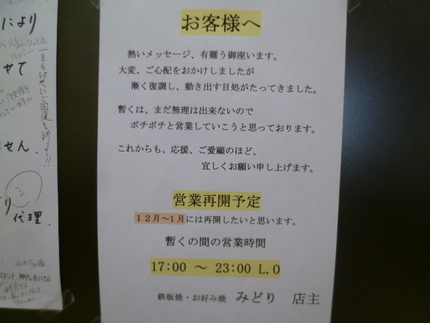 により
せて
せん.
り
代理.
お客様へ
熱いメッセージ、有難う御座います。
大変、ご心配をおかけしましたが
漸く復調し、動き出す目処がたってきました。
暫くは、まだ無理は出来ないので
ボチボチと営業していこうと思っております。
これからも、応援、ご愛顧のほど、
宜しくお願い申し上げます。
営業再開予定
12月〜1月には再開したいと思います。
暫くの間の営業時間
17:00 〜 23:00 L.O
鉄板焼・お好み焼 みどり 店主